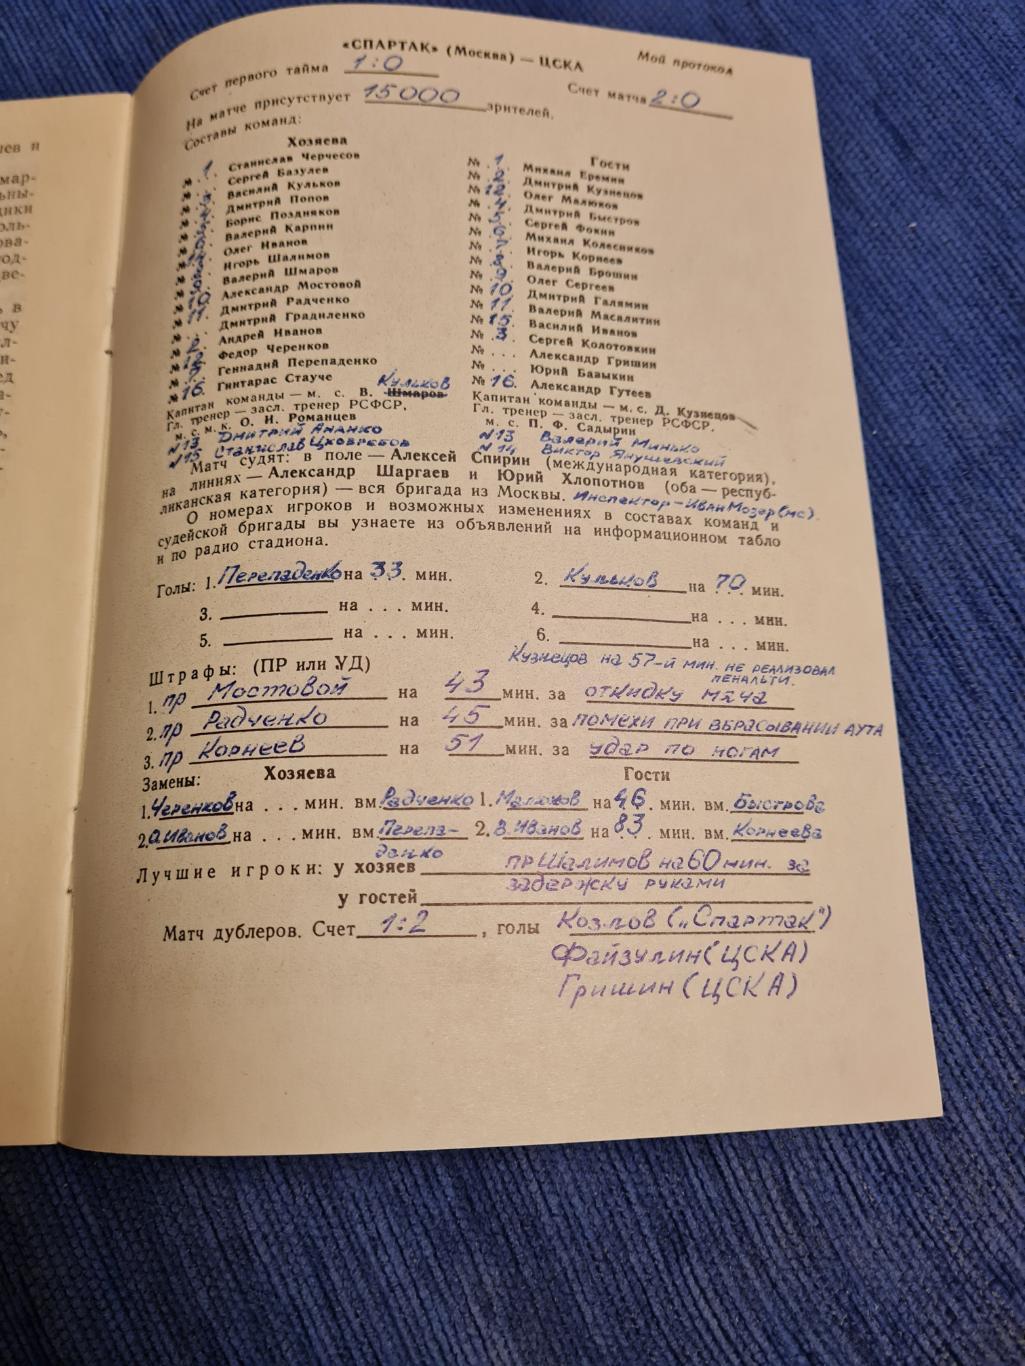 «СПАРТАК» (Москва) — ЦСКА
Мой протокол
Счет первого тайма 1:0
Счет матча 2:0
На матче присутствует 15000 зрителей.
Составы команд:
Хозяева
№ 1. Станислав Черчесов
Сергей Базулев
Василий Кульков
Дмитрий Попов
Борис Поздняков
Валерий Карпин
Олег Иванов
Игорь Шалимов
Валерий Шмаров
№ 10. Александр Мостовой
№ 11. Дмитрий Радченко
№ . . Дмитрий Градиленко
Андрей Иванов
Федор Черенков
Геннадий Перепаденко
№ 16. Гинтарас Стауче
Капитан команды — м. с. В. Шмаров Кульков
Гл. тренер — засл. тренер РСФСР,
м. с. м. к. О. И. Романцев
№13 Дмитрий Ананко
№15 Станислав Цховребов
Гости
№ 1. Михаил Еремин
№ 2. Дмитрий Кузнецов
№ 12. Олег Малюков
№ 4. Дмитрий Быстров
№ 5. Сергей Фокин
№ 6. Михаил Колесников
№ 7. Игорь Корнеев
№ 8. Валерий Брошин
№ 9. Олег Сергеев
№ 10. Дмитрий Галямин
№ 11. Валерий Масалитин
№ 15. Василий Иванов
№ 3. Сергей Колотовкин
№ . . . Александр Гришин
№ . . . Юрий Бавыкин
№ 16. Александр Гутеев
Капитан команды — м. с. Д. Кузнецов
Гл. тренер — засл. тренер РСФСР,
м. с. П. Ф. Садырин
№13 Валерий Минько
№14 Виктор Янушевский
Матч судят: в поле — Алексей Спирин (международная категория),
на линиях — Александр Шаргаев и Юрий Хлопотнов (оба — респуб-
ликанская категория) — вся бригада из Москвы. Инспектор - Иван Мозер (мс).
О номерах игроков и возможных изменениях в составах команд и
судейской бригады вы узнаете из объявлений на информационном табло
и по радио стадиона.
Голы: 1. Перепаденко на 33. мин. 2. Кульков на 70 мин.
3. на . . . мин. 4. на . . . мин.
5. на . . . мин. 6. на . . . мин.
Кузнецов на 57-й мин. не реализовал
пенальти.
Штрафы: (ПР или УД)
1. пр Мостовой на 43 мин. за откидку мяча
2. пр Радченко на 45 мин. за помехи при вбрасывании аута
3. пр Корнеев на 51 мин. за удар по ногам
Замены: Хозяева Гости
1. Черенков на . . . мин. вм. Радченко 1. Малюков на 46. мин. вм. Быстрова
2. О.Иванов на . . . мин. вм. Перепа- 2. В.Иванов на 83. мин. вм. Корнеева
денко
Лучшие игроки: у хозяев пр Шалимов на 60 мин. за
задержку руками
у гостей
Матч дублеров. Счет 1:2, голы Козлов („Спартак")
Файзулин (ЦСКА)
Гришин (ЦСКА)